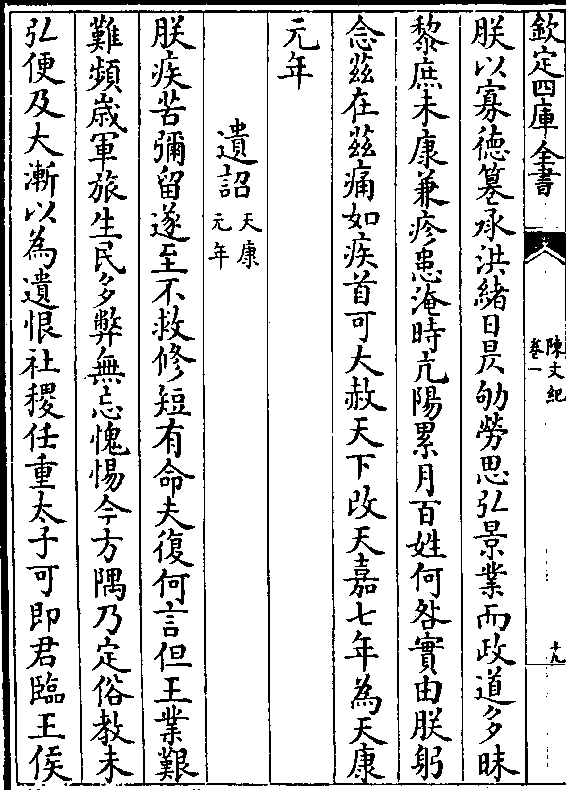 欽定四庫全書
陳文紀
卷一
十九
朕以寡徳簒承洪緒日昃劬勞思弘景業而政道多昧
黎庶未康兼疹患淹時亢陽累月百姓何咎實由朕躬
念茲在茲痛如疾首可大赦天下改天嘉七年為天康
元年
遺詔天康元年
朕疾苦彌留遂至不救修短有命夫復何言但王業艱
難頻歳軍旅生民多弊無忘愧惕今方隅乃定俗教未
弘便及大漸以為遺恨社稷任重太子可即君臨王侯